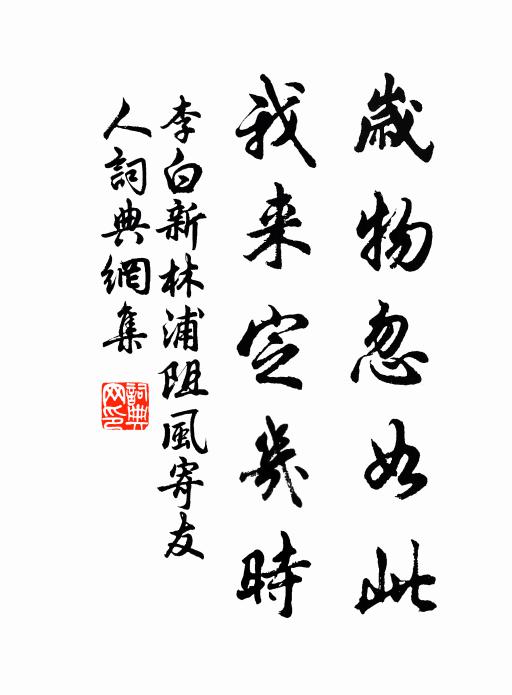 歲物忽如此
我来定幾時
李白新林浦阻風寄友
人詞典網集
詞典網印